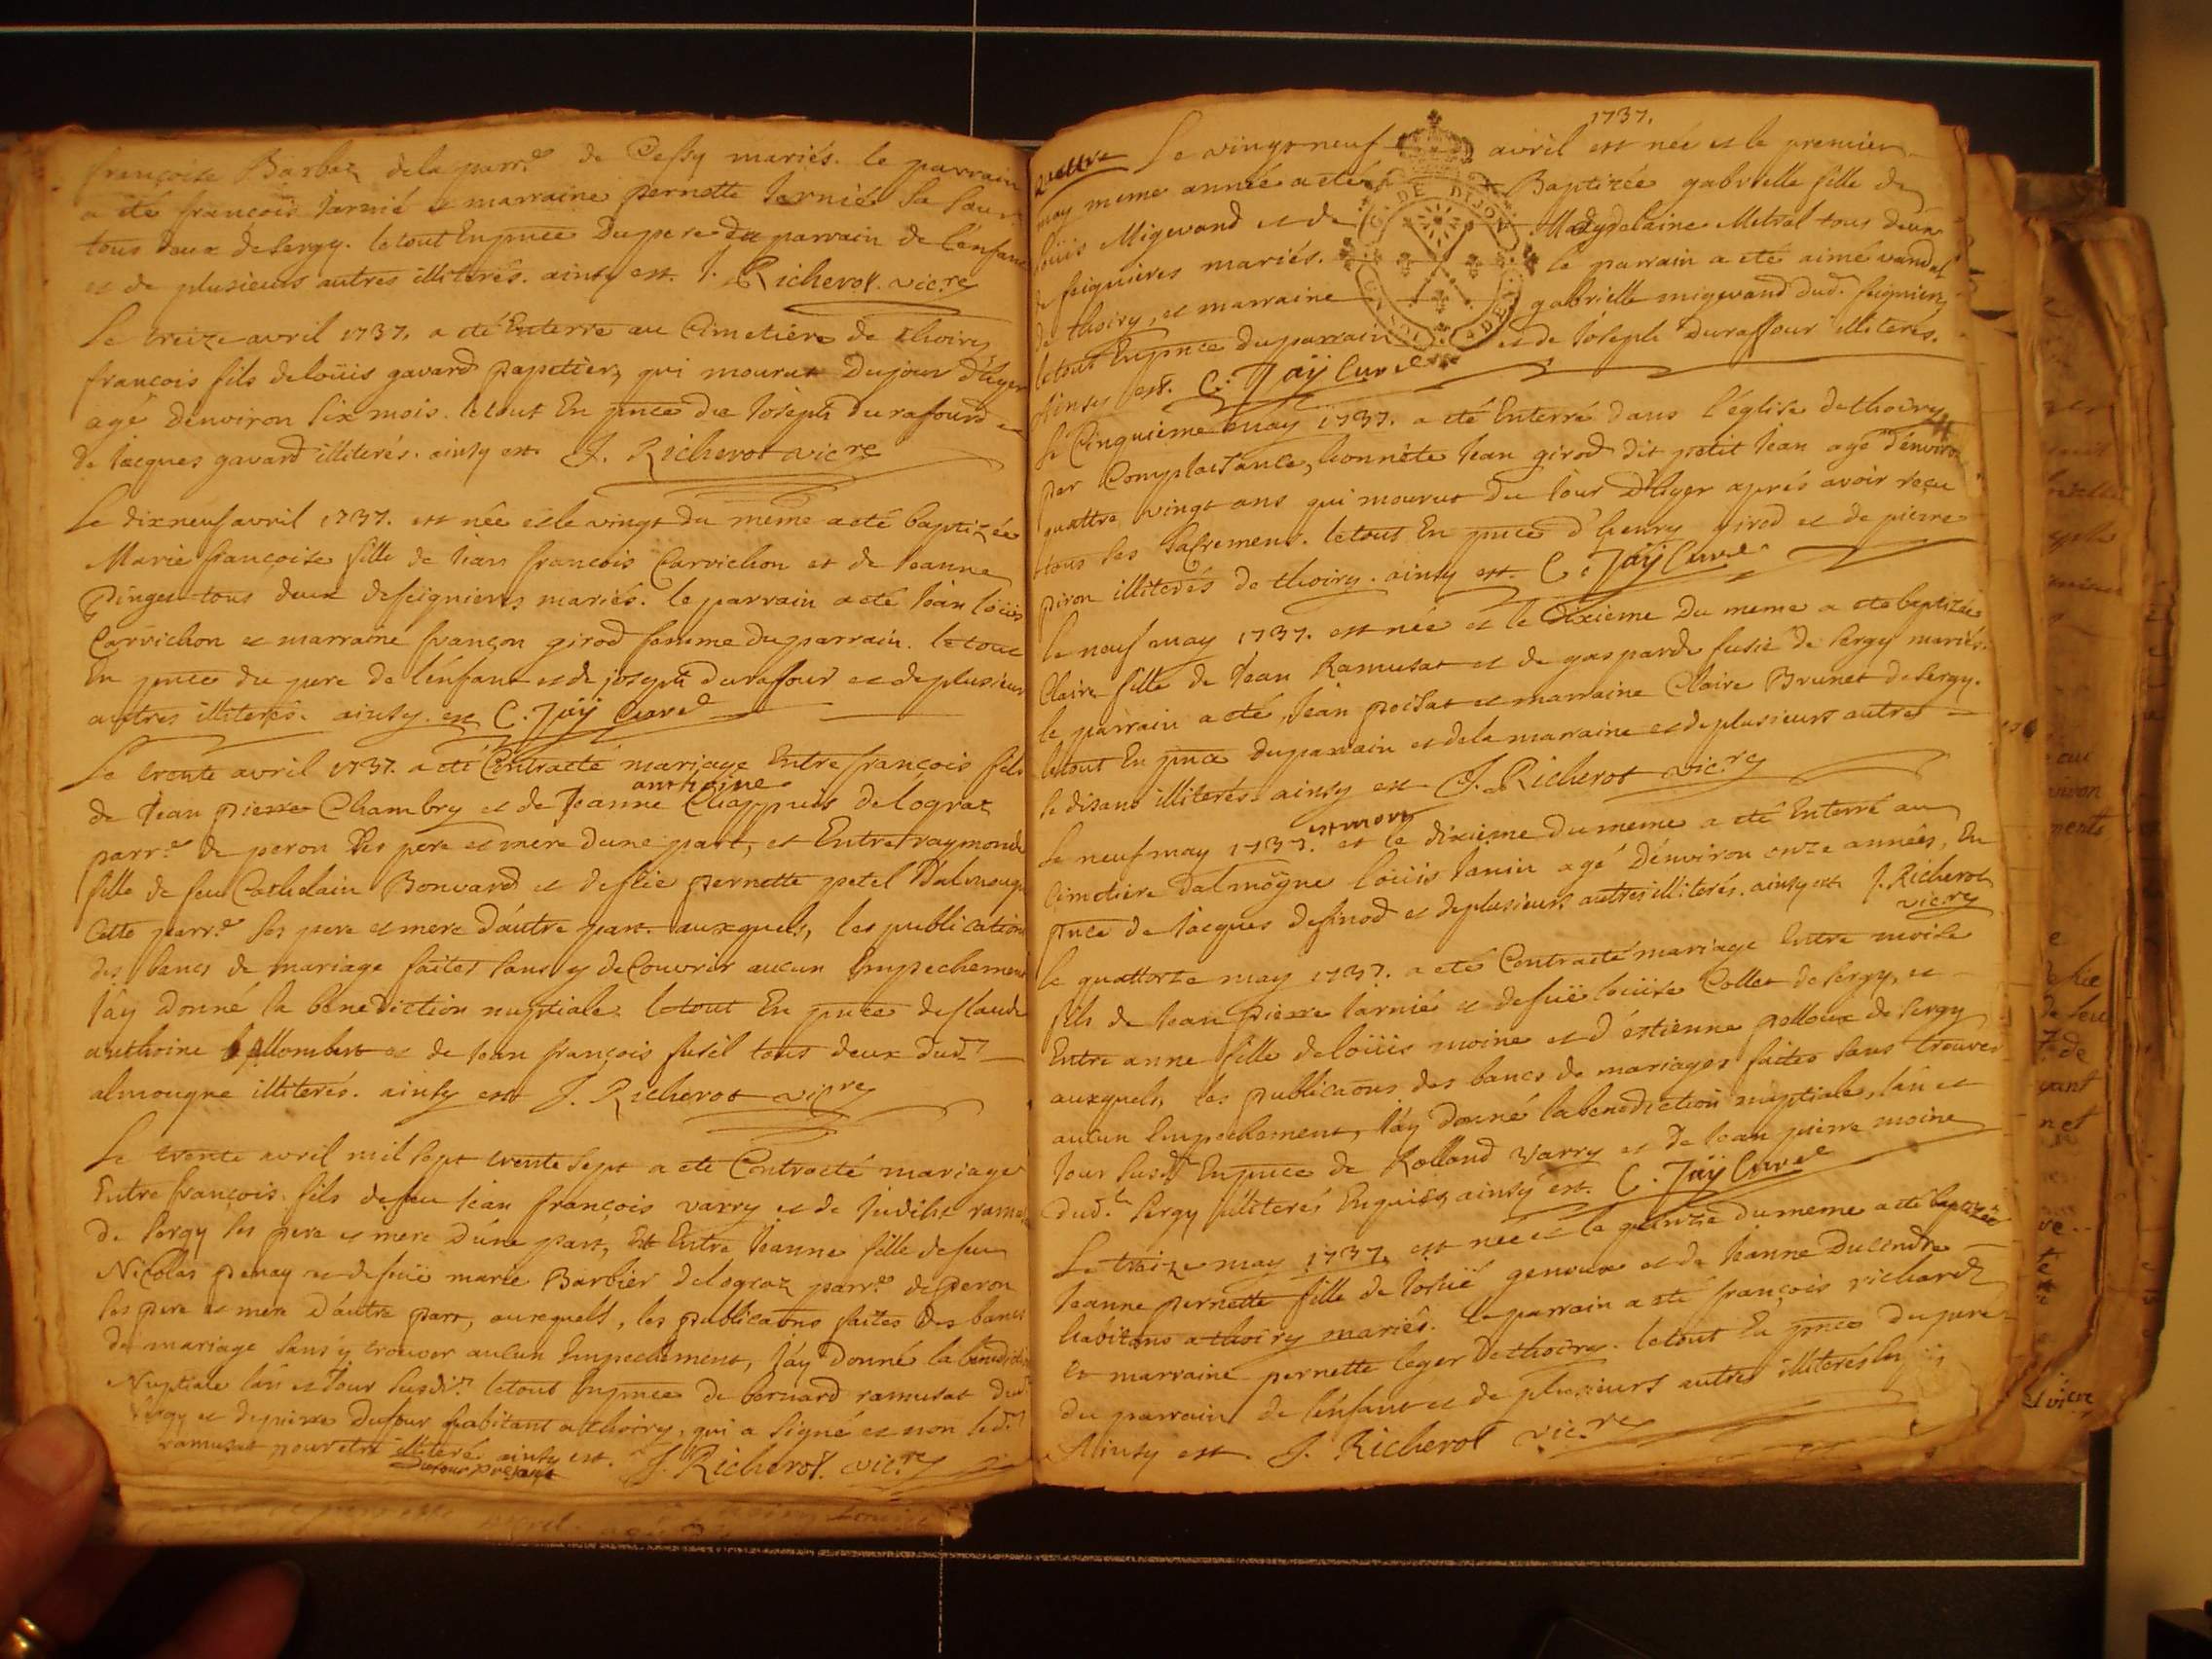 françoise Barbaz dela parr.e de Cessy mariés. le parrain
a été françois Jarnié et marraine pernette Jarnié sa sœur
tous deux de Sergy. letout En pnce Du pere du parrain de l'enfant
et de plusieurs autres illiterés. ainsy est. J. Richerot. vic.re
Le treize avril 1737. a été Enterré au Cimetiere de thoiry
françois fils de loüis gavard papetier, qui mourut Dujour d'hyer
agé Denviron six mois. letout En pnce de Joseph durafourd et
de Jacques gavard illiterés. ainsy est. J. Richerot vicre
Le dixneuf avril 1737. est née et le vingt du meme a eté baptizée
Marie françoise fille de Jean françois Carrichon et de Jeanne
Pinget tous deux defeignieres mariés. le parrain a eté Jean loüis
Carrichon et marraine françon girod femme du parrain. letout
En pnce du pere de l'enfant et de joseph Durafour et de plusieurs
autres illiterés. ainsy est C. Jaÿ Curé
Le trente avril 1737. a eté Contracté mariage Entre françois fils
de Jean pierre Chambry et de Jeanne anthoine Chappuis delograz
parr.e de peron ses pere et mere dune part, et Entre raymonde
fille de feu Cathelain Bonvard et de füe pernette petel Dalmougne
Cette parr.e ses pere et mere d'autre part. auxquels, les publications
des bancs de mariage faites sans y decouvrir aucun Empechement
J'ay donné la benediction nuptiale. letout En pnce de Claude
anthoine allombert et de Jean françois fusil tous deux dud.t
almougne illiterés. ainsy est J. Richerot vicre
Le trente avril mil sept trente sept a eté Contracté mariage
Entre françois fils defeu Jean françois varry et de Judiht
de Sergy ses pere et mere D'une part, Et Entre Jeanne fille defeu
Nicolas penay et defeuë marie Barbier delograz parr.e de peron
ses pere et mere D'autre part, auxquels, les publicaõns faites Des bancs
de mariage sans y trouver aucun Empechement, J'ay Donné la bénédiction
Nuptiale l'an et Jour susdi.t letout En pnce de bernard ramusat dud.t
Sergy et de pierre Dufour habitant a thoiry, qui a signé et non led.t
ramusat pour etre illiteré ainsy est. J. Richerot. vic.re
Dufour présant
1737.
quattre
Le vingt neuf avril est née et le premier
may meme année a eté Baptizée gabrielle fille de
loüis Migevand et de Magdelaine Metral tous deux
de feignieres mariés. le parrain a eté aimé vandel
de thoiry, et marraine gabrielle migevand dud. feignieres
letout En pnce du parrain et de Joseph Duraffour illiterés.
Ainsy est. C. Jaÿ Curé
G. DE DIJON
Le Cinquieme may 1737. a eté Enterré dans l'église de thoiry
par Complaisance, honnête Jean girod dit petit Jean agé d'environ
quattre vingt ans qui mourut du Jour d'hyer aprés avoir reçu
tous ses Sacremens. letout En pnce d'henry girod et de pierre
piron illiterés de thoiry. ainsy est. C. Jaÿ Curé
Le neuf may 1737. est née et le dixieme Du meme a eté baptizée
Claire fille de Jean Ramusat et de gasparde fusié de Sergy mariés.
le parrain a eté, Jean poisat et marraine Claire Brunet de Sergy.
letout En pnce du parrain et de la marraine et de plusieurs autres
se disans illiterés ainsy est J. Richerot vic.re
Le neuf may 1737. est mort et le dixieme du meme a eté Enterré au
Cimetiere Dalmögne loüis Janin agé d'environ onze années, En
pnce de Jacques desinod et de plusieurs autres illiterés. ainsy est J. Richerot
vic.re
Le quattorze may 1737. a eté Contracté mariage Entre moise
fils de Jean pierre Jarnié et defuë loüise Collet de Sergy, et
Entre anne fille de loüis moine et d'estienne polloux de Sergy
auxquels, les publicaõns des bancs de mariages faites sans trouver
aucun Empechement, J'ay donné la benediction nuptiale, l'an et
Jour susd.t En pnce de Rolland Varry et de Jean pierre moine
dud.t Sergy illiterés Enquis, ainsy est. C. Jaÿ Curé
Le treize may 1737. est née et le quinze du meme a eté baptizée
Jeanne pernette fille de Josué genoux et de Jeanne Ducendre
habitans a thoiry mariés. le parrain a eté françois richard
et marraine pernette leger de thoiry. letout En pnce du pere
du parrain de l'enfant et de plusieurs autres illiterés
Ainsy est J. Richerot vic.re